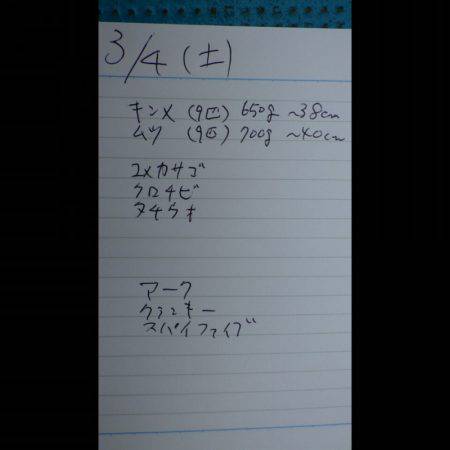 3/4(土)
キンメ (9匹) 650g ~38cm
ムツ (9匹) 700g ~40cm
ユメカサゴ
クロチビ
ヌキウオ
アーク
クランキー
スパイファイブ